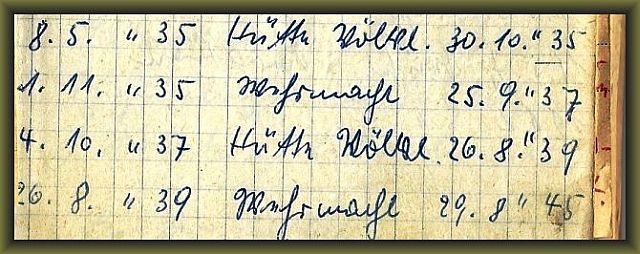 8. 5. " 35 Hütte Völkl. 30. 10. " 35
1. 11. " 35 Wehrmacht 25. 9. " 37
4. 10. " 37 Hütte Völkl. 26. 8. " 39
26. 8. " 39 Wehrmacht 29. 8 " 45